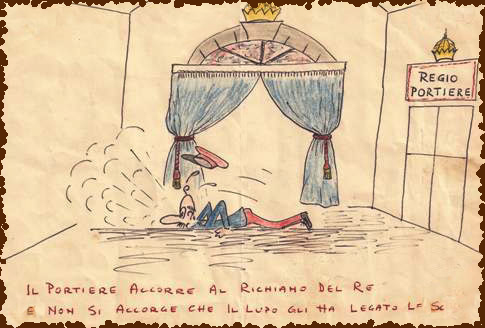 REGIO
PORTIERE
IL PORTIERE ACCORRE AL RICHIAMO DEL RE
E NON SI ACCORGE CHE IL LUPO GLI HA LEGATO LE SC